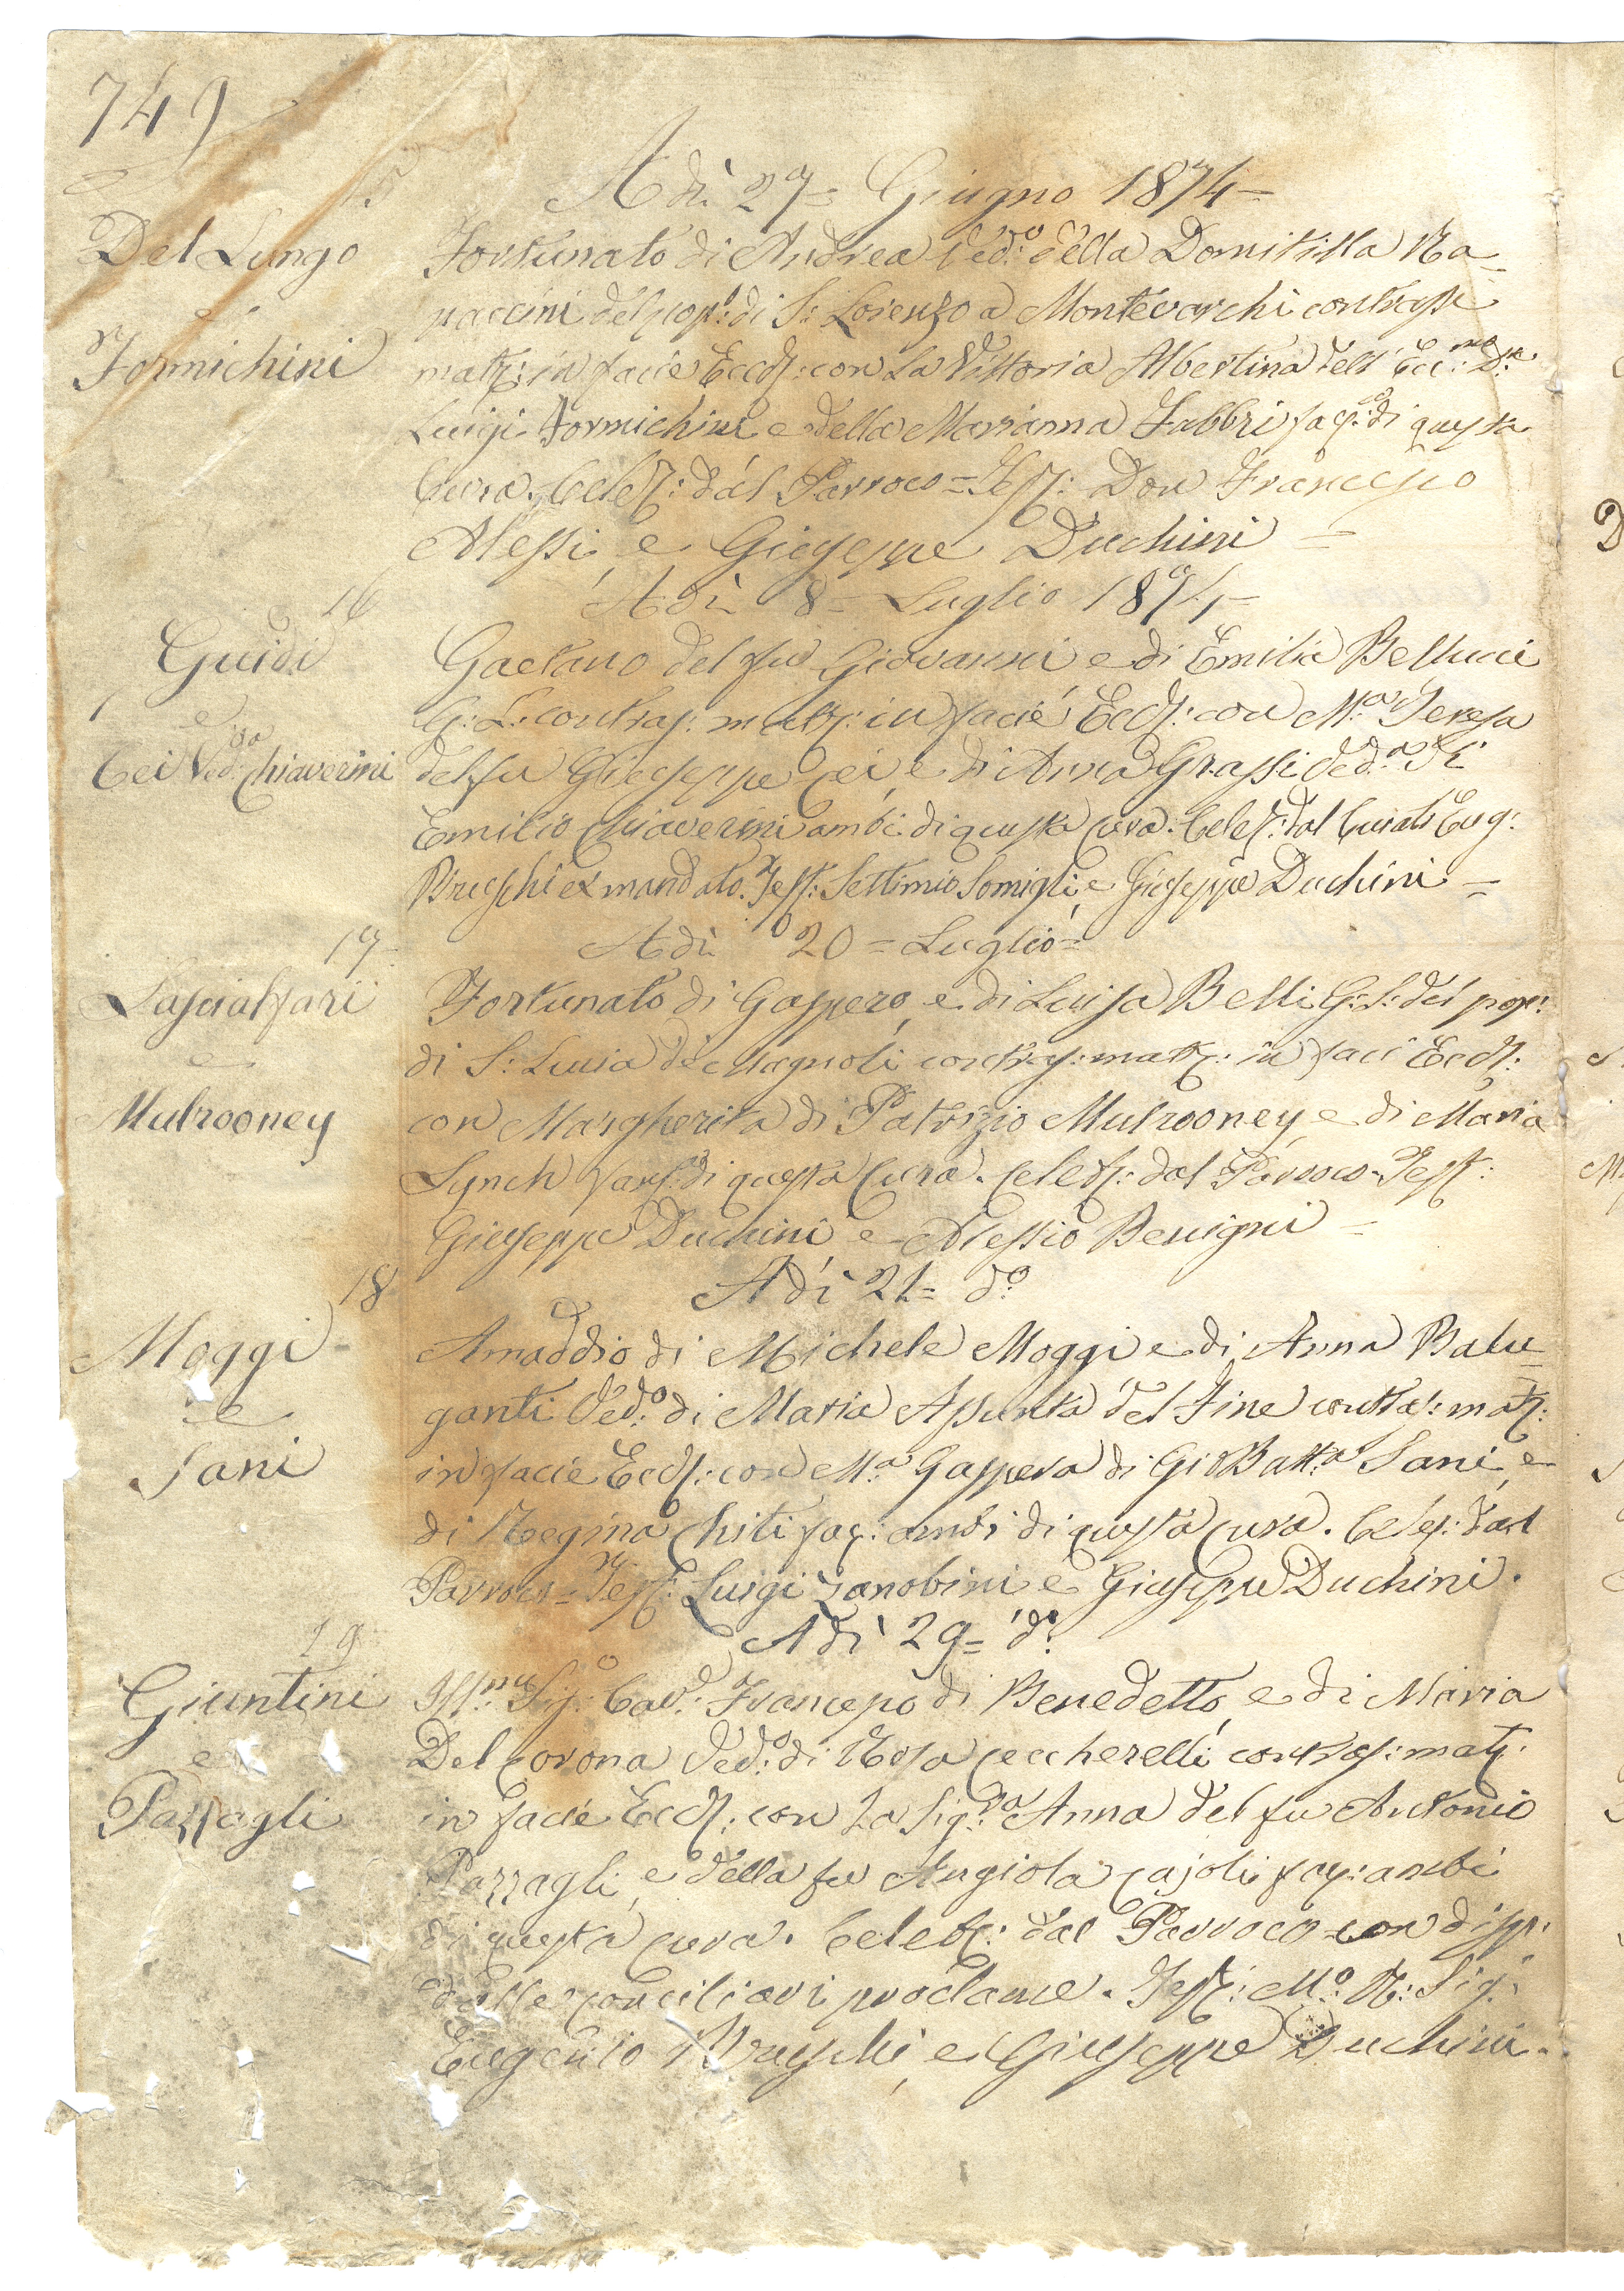 749
15
Adì 27= Giugno 1874=
Del Lungo
e
Formichini
Fortunato di Andrea Ved:o della Domitilla Na=
naccini del pop:o di S: Lorenzo a Montevarchi contrasse
matr: in facie Eccl: con la Vittoria Albertina dell' Ecc:mo D:re
Luigi Formichini e della Marianna Fabbri fac: di questa
Cura. Celeb: dal Parroco = Test: Don Francesco
Alessi, e Giuseppe Duchini =
16
Adì 8= Luglio 1874=
Guidi
e
Cei Ved:va Chiaverini
Gaetano del fu Giovanni e di Emilia Bellucci
G: L: contras: matr: in facie Eccl: con M:a Teresa
del fu Giuseppe Cei, e di Anna Grassi Ved:a di
Emilio Chiaverini ambi di questa Cura: Celeb: dal Curato Eug:
Brueschi ex mandato. Test: Settimio Somigli, e Giuseppe Duchini =
17=
Adì 20= Luglio=
Lasciatfari
e
Mulrooney
Fortunato di Gaspero, e di Luisa Belli G: L: del pop:
di S: Lucia de Magnoli contras: matr: in faci Eccl:
con Margherita di Patrizio Mulrooney, e di Maria
Lynch fanc: di questa Cura. Celeb: dal Parroco = Test:
Giuseppe Duchini e Alessio Benigni =
18
Adì 21= d:o
Moggi
e
Sani
Amaddio di Michele Moggi e di Anna Balu=
ganti Ved:o di Maria Assunta Del Fine contras: matr:
in facie Eccl: con M:a Gaspera di GioBatt:a Sani, e
di Regina Chiti fac: ambi di questa Cura. Celeb: dal
Parroco = Test: Luigi Zanobini e Giuseppe Duchini.
19
Adì 29= d:o
Giuntini
e
Pazzagli
Ill:mo Sig:o Cav: Francesco di Benedetto, e di Maria
Del Corona Ved:o di Rosa Ceccherelli contras: matr:
in facie Eccl: con La Sig:ra Anna del fu Antonio
Pazzagli, e della fu Angiola Cajoli fac: ambi
di questa Cura. Celeb: dal Parroco = con disp:
dalle Conciliari proclame. Test: M:o R: Sig:
Eugenio Brueschi, e Giuseppe Duchini.